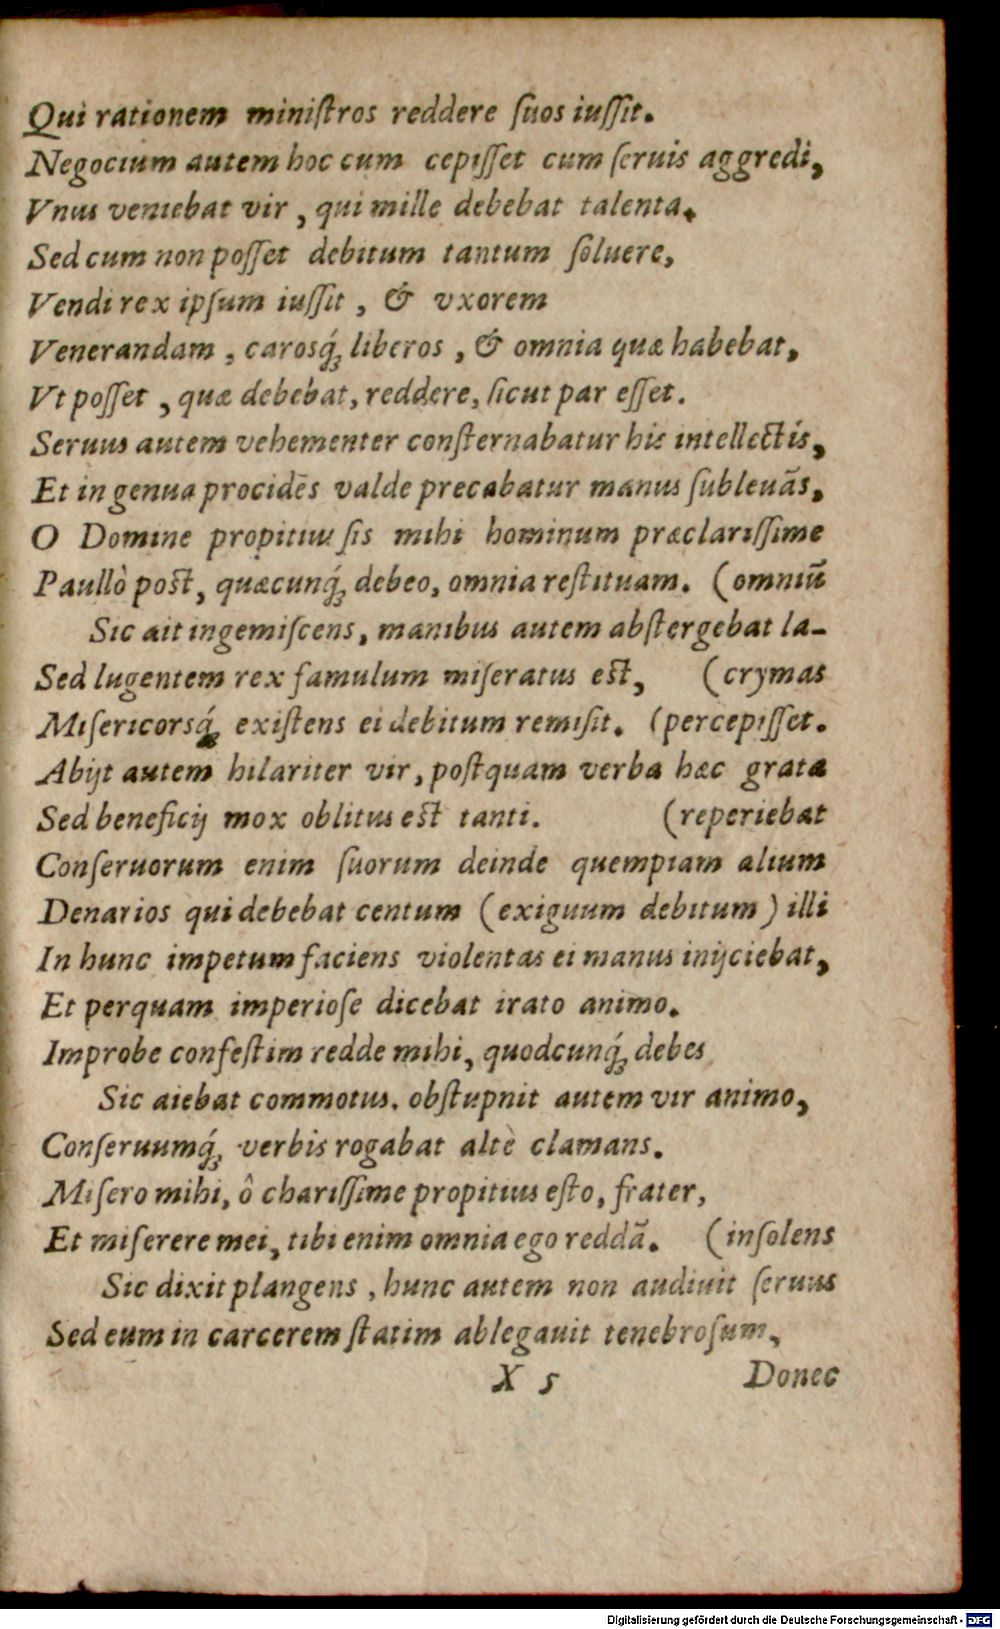 Qui rationem miniſtros reddere ſuos iuſſit.
Negocium autem hoc cum cepiſſet cum ſeruis aggredi,
Vnus veniebat vir, qui mille debebat talenta.
Sed cum non poſſet debitum tantum ſoluere,
Vendi rex ipſum iuſſit, & vxorem
Venerandam, carosq́; liberos, & omnia quæ habebat,
Vt poſſet, quæ debebat, reddere, ſicut par eſſet.
Seruus autem vehementer conſternabatur his intellectis,
Et in genua procidēs valde precabatur manus ſubleuãs,
O Domine propitius ſis mihi hominum præclariſſime
Paullò poſt, quæcunq́; debeo, omnia reſtituam. (omniũ
Sic ait ingemiſcens, manibus autem abſtergebat la-
Sed lugentem rex famulum miſeratus eſt, (crymas
Miſericorsq́; exiſtens ei debitum remiſit. (percepiſſet.
Abijt autem hilariter vir, poſtquam verba hæc grata
Sed beneficij mox oblitus eſt tanti. (reperiebat
Conſeruorum enim ſuorum deinde quempiam alium
Denarios qui debebat centum (exiguum debitum) illi
In hunc impetum faciens violentas ei manus inijciebat,
Et perquam imperioſe dicebat irato animo.
Improbe confeſtim redde mihi, quodcunq́; debes
Sic aiebat commotus. obſtupnit autem vir animo,
Conſeruumq́; verbis rogabat altè clamans.
Miſero mihi, ô chariſſime propitius eſto, frater,
Et miſerere mei, tibi enim omnia ego reddã. (inſolens
Sic dixit plangens, hunc autem non audiuit ſeruus
Sed eum in carcerem ſtatim ablegauit tenebroſum,
X 5 Donec
Digitalisierung gefördert durch die Deutsche Forschungsgemeinschaft - DFG